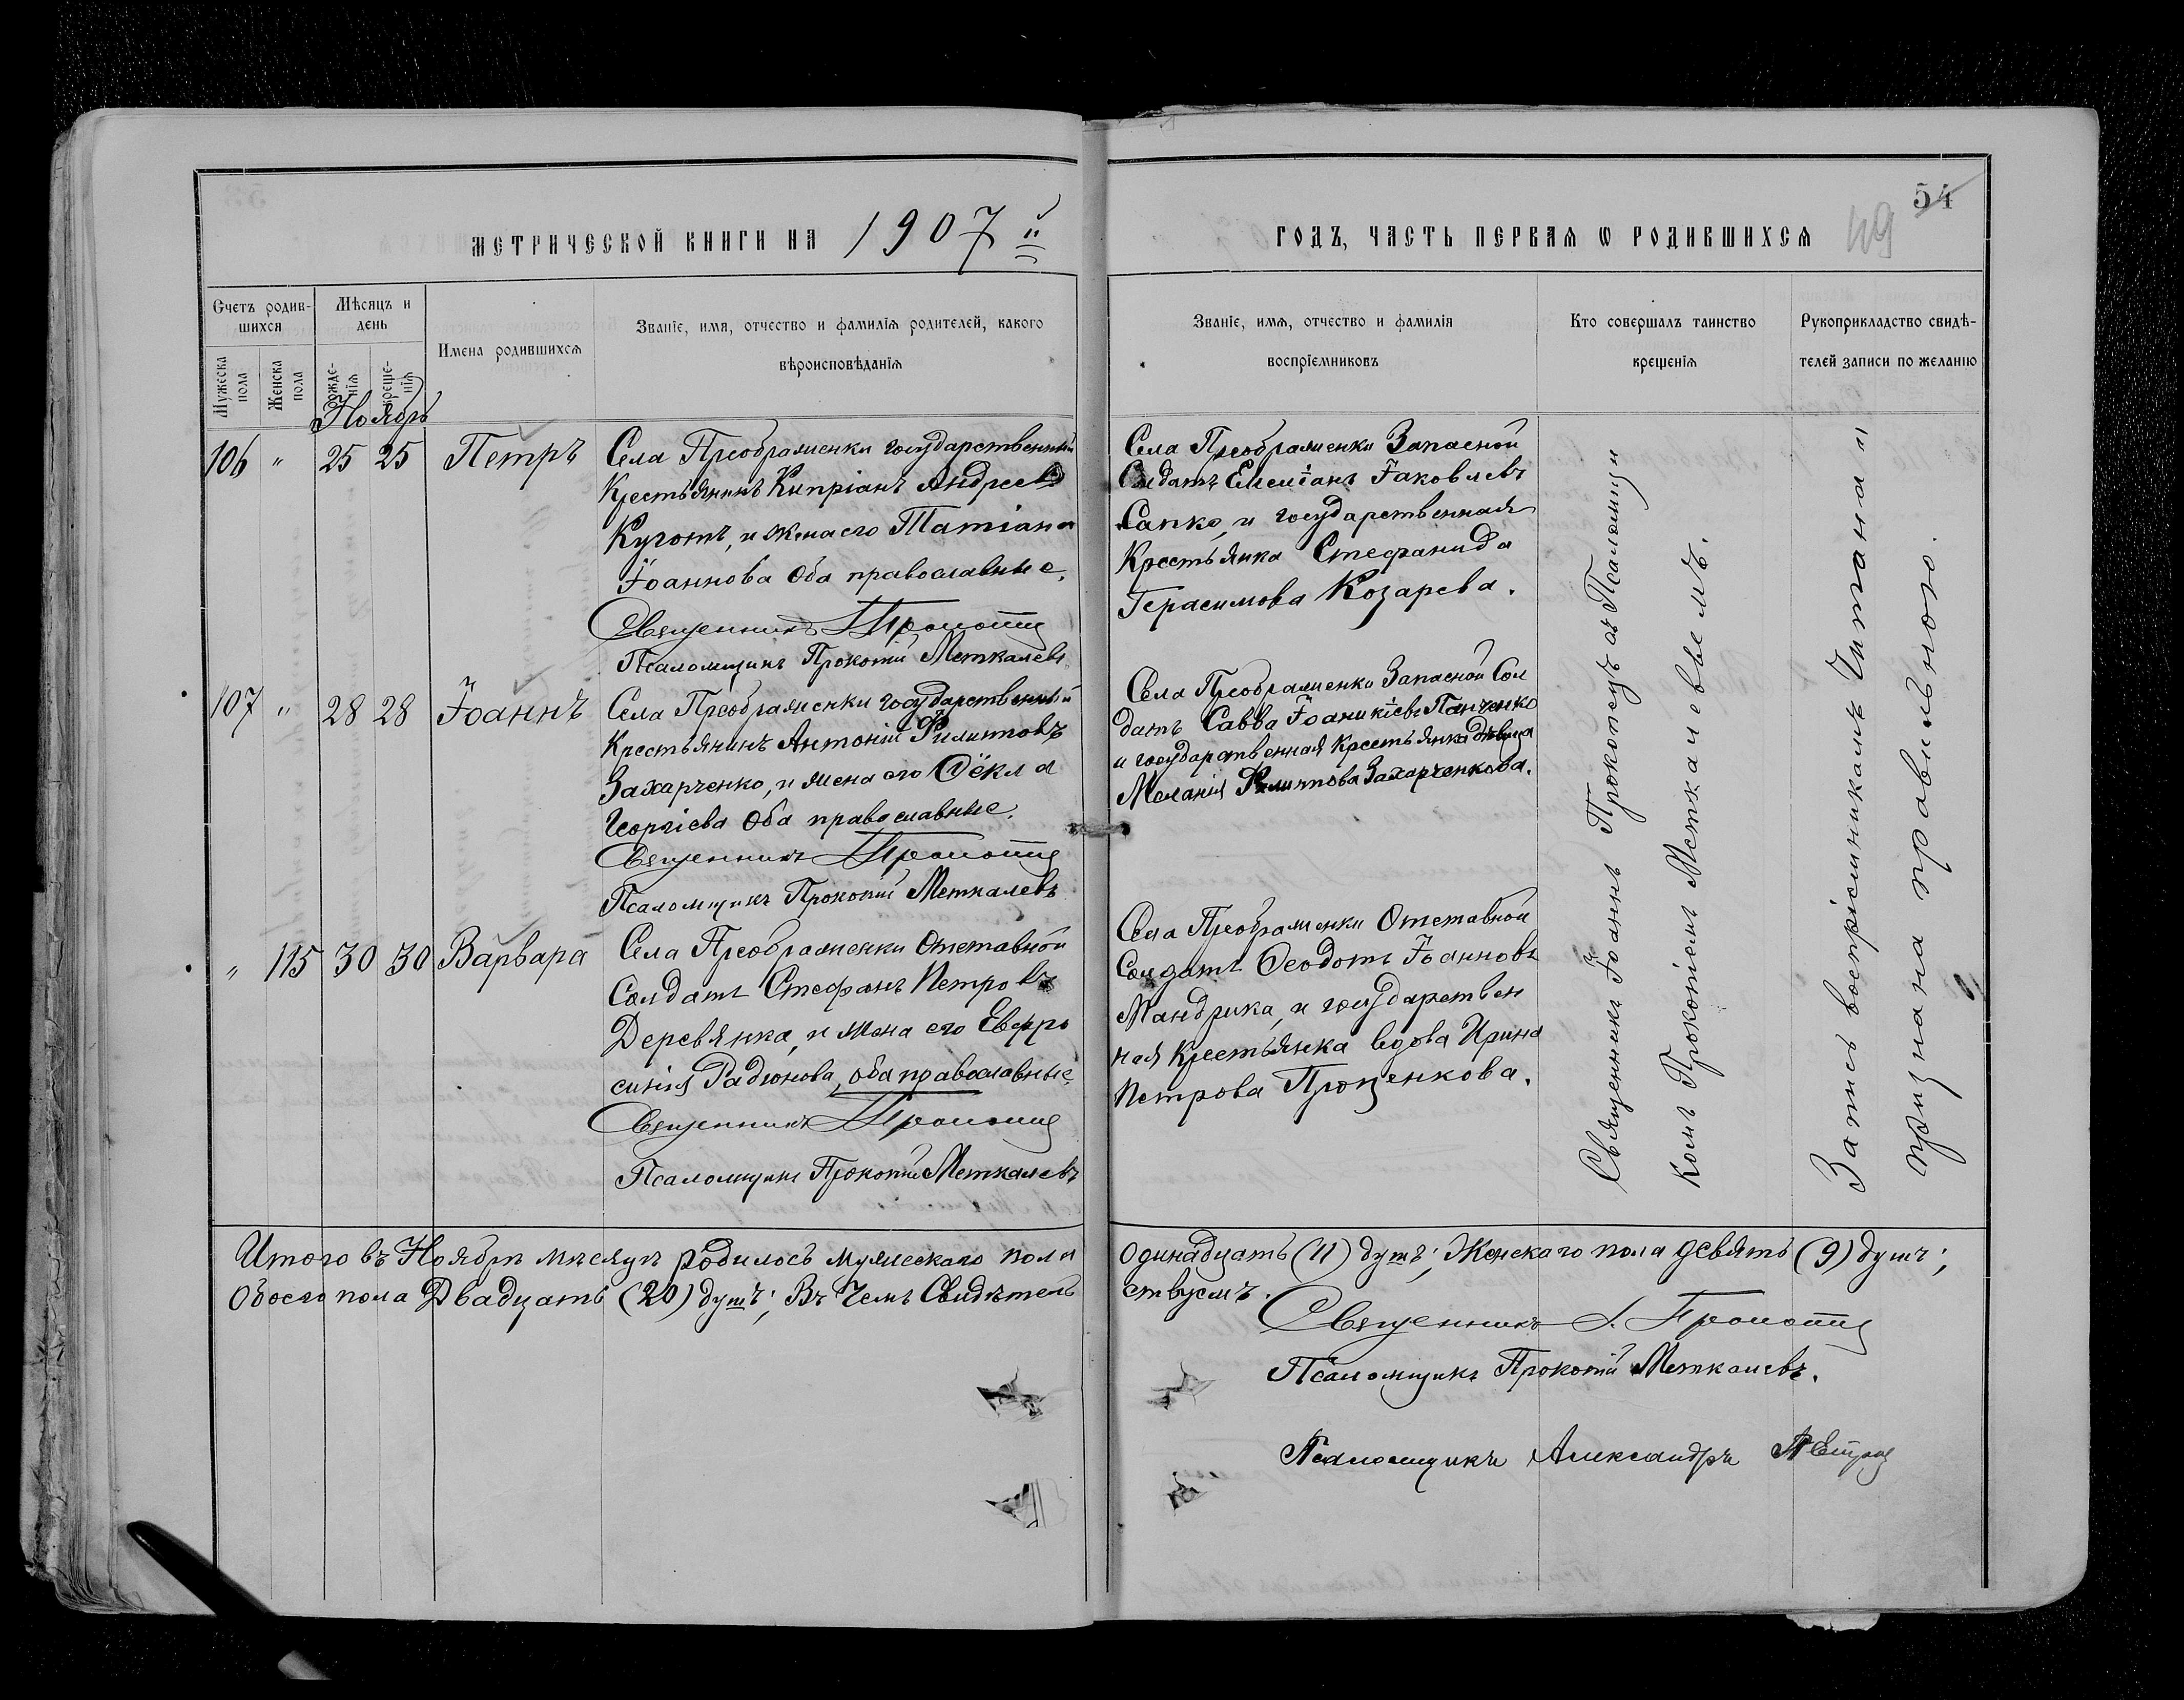 54
49
МЕТРИЧЕСКОЙ КНИГИ НА 1907й
ГОДЪ, ЧАСТЬ ПЕРВАЯ Ѡ РОДИВШИХСЯ
Счетъ родив-
шихся
Мѣсяцъ и
день
Мужеска
пола
Женска
пола
рожде-
нія
креще-
нія
Имена родившихся
Званіе, имя, отчество и фамилія родителей, какого
вѣроисповѣданія
Званіе, имя, отчество и фамилія
воспріемниковъ
Кто совершалъ таинство
крещенія
Рукоприкладство свидѣ-
телей записи по желанію
Ноябрь
106 " 25 25 Петръ
Села Преображенки государственный
Крестьянинъ Кипріанъ Андреевъ
Куготъ, и жена его Татіана
Іоаннова Оба православные.
Священникъ
Псаломщикъ Прокопій Меткалевъ
Села Преображенки Запасной
Солдатъ Емеліанъ Іаковлевъ
Сапко, и государственная
Крестьянка Стефанида
Герасимова Козарева.
107 " 28 28 Іоаннъ
Села Преображенки государственный
Крестьянинъ Антоній Филиповъ
Захарченко, и жена его Ѳёкла
Георгіева Оба православные.
Священникъ
Псаломщикъ Прокопій Меткалевъ
Села Преображенки Запасной Сол
датъ Савва Іоаникіевъ Панченко
и государственная Крестьянка дѣвица
Меланія Филиппова Захарченкова.
" 115 30 30 Варвара
Села Преображенки Отставной
Солдатъ Стефанъ Петровъ
Деревянка, и жена его Евфро
синія Радіонова, оба православные.
Священникъ
Псаломщикъ Прокопій Меткалевъ
Села Преображенки Отставной
Солдатъ Ѳеодотъ Іоанновъ
Мандрика, и государствен
ная Крестьянка вдова Ирина
Петрова Проценкова.
Священникъ Іоаннъ Прокопецъ съ Псаломщи
комъ Прокопіемъ Меткалевымъ.
Запись воспріемникамъ читана и
признана правильною.
Итого въ Ноябрѣ мѣсяцѣ родилось мужескаго пола
Обоего пола Двадцать (20) душъ; Въ Чемъ Свидѣтель
одинадцать (11) душъ; Женскаго пола девять (9) душъ;
ствуемъ.
Священникъ І.
Псаломщикъ Прокопій Меткалевъ.
Псаломщикъ Александръ